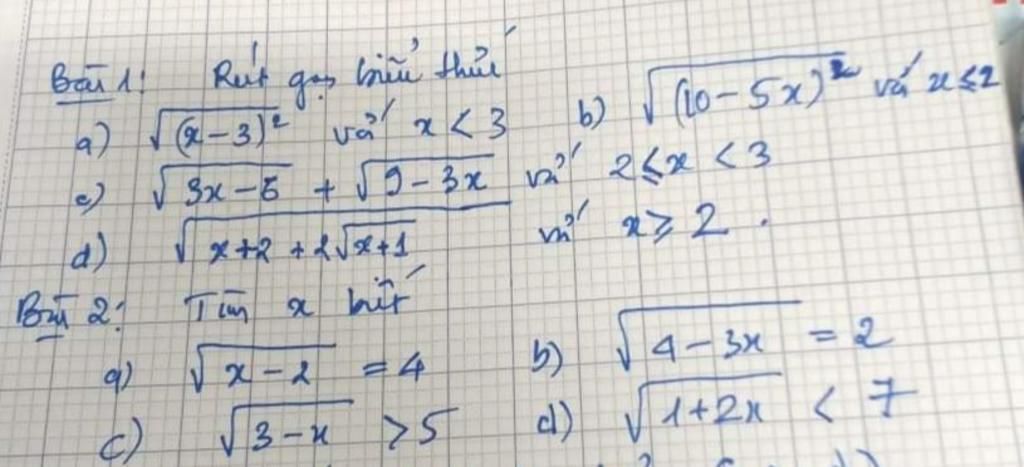 Bài 1: Rút gọn biểu thức
a) √(x-3)² với x < 3 b) √(10-5x)² với x ≤ 2
c) √3x-6 + √9-3x với 2 ≤ x < 3
d) √x+2+2√x+1 với x ≥ 2.
Bài 2: Tìm x biết
a) √x-2 = 4 b) √4-3x = 2
c) √3-x > 5 d) √1+2x < 7